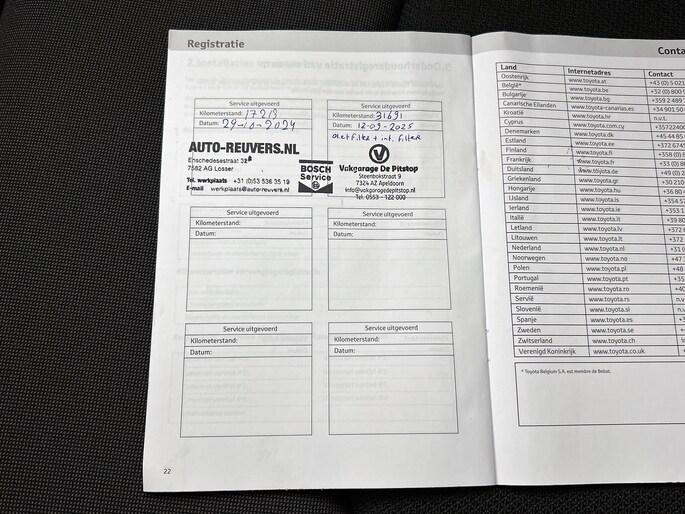 Registratie
Service uitgevoerd
Kilometerstand: 17213
Datum: 29-10-2024
AUTO-REUVERS.NL
Enschedesestraat 32ª
7582 AG Losser
Tel. werkplaats +31 (0)53 536 35 19
E-mail werkplaats@auto-reuvers.nl
BOSCH
Service
Service uitgevoerd
Kilometerstand: 31691
Datum: 12-09-2025
Vakgarage De Pitstop
Steenbokstraat 9
7324 AZ Apeldoorn
info@vakgaragedepitstop.nl
Tel. 0553 - 122 000
Service uitgevoerd
Kilometerstand:
Datum:
Service uitgevoerd
Kilometerstand:
Datum:
Service uitgevoerd
Kilometerstand:
Datum:
Service uitgevoerd
Kilometerstand:
Datum:
22
Conta
Land Internetadres Contact
Oostenrijk www.toyota.at +43 (0) 5 021
België* www.toyota.be +32 (0) 800 9
Bulgarije www.toyota.bg +359 2 489
Canarische Eilanden www.toyota-canarias.es +34 901 50
Kroatië www.toyota.hr n.v.t.
Cyprus www.toyota.com.cy +35722400
Denemarken www.toyota.dk +45 44 85
Estland www.toyota.ee +372 6745
Finland www.toyota.fi +358 (0) 8
Frankrijk www.toyota.fr +33 (0) 8
Duitsland www.toyota.de +49 (0) 2
Griekenland www.toyota.gr +30 210
Hongarije www.toyota.hu +36 80 4
IJsland www.toyota.is +354 57
Ierland www.toyota.ie +353 1
Italië www.toyota.it +39 80
Letland www.toyota.lv +372
Litouwen www.toyota.lt +372
Nederland www.toyota.nl +31 (
Noorwegen www.toyota.no +47
Polen www.toyota.pl +48
Portugal www.toyota.pt +35
Roemenië www.toyota.ro +40
Servië www.toyota.rs n.v
Slovenië www.toyota.si n.v
Spanje www.toyota.es +3
Zweden www.toyota.se +
Zwitserland www.toyota.ch
Verenigd Koninkrijk www.toyota.co.uk
* Toyota Belgium S.A. est membre de Belbat.